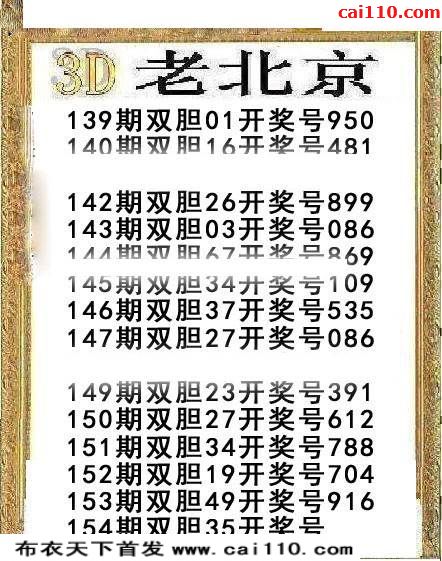 cai110.com
3D 老北京
139期双胆01开奖号950
140期双胆16开奖号481
142期双胆26开奖号899
143期双胆03开奖号086
144期双胆67开奖号869
145期双胆34开奖号109
146期双胆37开奖号535
147期双胆27开奖号086
149期双胆23开奖号391
150期双胆27开奖号612
151期双胆34开奖号788
152期双胆19开奖号704
153期双胆49开奖号916
154期双胆35开奖号
布衣天下首发 www.cai110.com